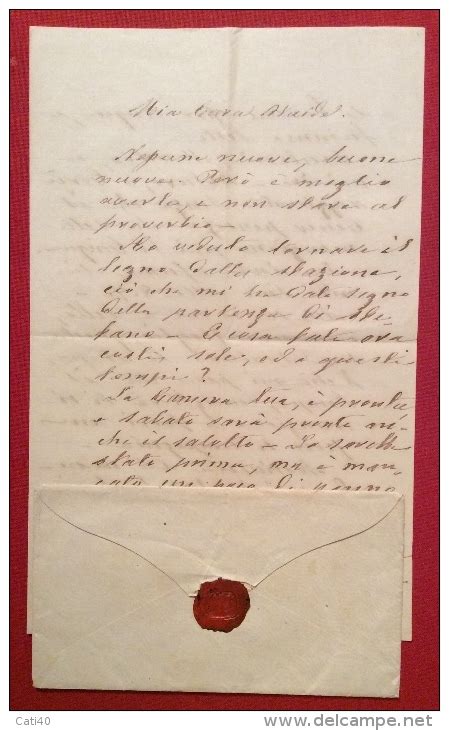 Mia cara Naide.
Nepure nuove, buone
nuove. Però è meglio
averle, e non stare al
proverbio —
Ho veduto tornare il
legno dalla stazione,
ciò che mi ha dato segno
della partenza di Ste=
fano — E cosa fate ora
costì sole, ed a questi
tempi?
La Camera tua, è pronta
e sabato sarà pronto an=
che il salotto — Lo sarebbe
stato prima, ma è man=
cato un paio di
Cati40
www.delcampe.net